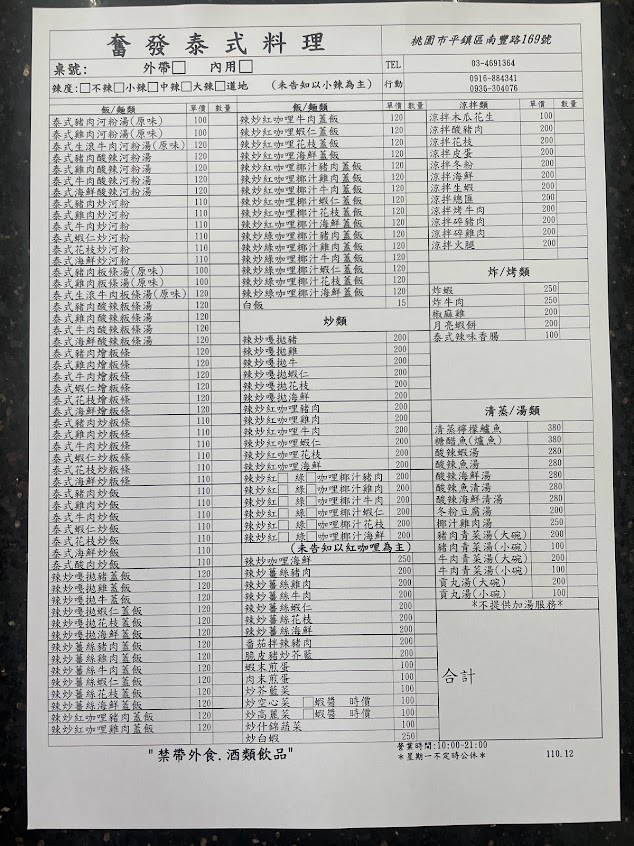 奮發泰式料理
桃園市平鎮區南豐路169號
桌號: 外帶□ 內用□
TEL 03-4691364
辣度:□不辣□小辣□中辣□大辣□道地 (未告知以小辣為主)
行動 0916-884341
0936-304076
飯/麵類 單價 數量
泰式豬肉河粉湯(原味) 100
泰式雞肉河粉湯(原味) 100
泰式生滾牛肉河粉湯(原味) 120
泰式豬肉酸辣河粉湯 120
泰式雞肉酸辣河粉湯 120
泰式牛肉酸辣河粉湯 120
泰式海鮮酸辣河粉湯 120
泰式豬肉炒河粉 110
泰式雞肉炒河粉 110
泰式牛肉炒河粉 110
泰式蝦仁炒河粉 110
泰式花枝炒河粉 110
泰式海鮮炒河粉 110
泰式豬肉粄條湯(原味) 100
泰式雞肉粄條湯(原味) 100
泰式生滾牛肉粄條湯(原味) 120
泰式豬肉酸辣粄條湯 120
泰式雞肉酸辣粄條湯 120
泰式牛肉酸辣粄條湯 120
泰式海鮮酸辣粄條湯 120
泰式豬肉燴粄條 120
泰式雞肉燴粄條 120
泰式牛肉燴粄條 120
泰式蝦仁燴粄條 120
泰式花枝燴粄條 120
泰式海鮮燴粄條 120
泰式豬肉炒粄條 110
泰式雞肉炒粄條 110
泰式牛肉炒粄條 110
泰式蝦仁炒粄條 110
泰式花枝炒粄條 110
泰式海鮮炒粄條 110
泰式豬肉炒飯 110
泰式雞肉炒飯 110
泰式牛肉炒飯 110
泰式蝦仁炒飯 110
泰式花枝炒飯 110
泰式海鮮炒飯 110
泰式酸肉炒飯 110
辣炒嘎拋豬蓋飯 120
辣炒嘎拋雞蓋飯 120
辣炒嘎拋牛蓋飯 120
辣炒嘎拋蝦仁蓋飯 120
辣炒嘎拋花枝蓋飯 120
辣炒嘎拋海鮮蓋飯 120
辣炒薑絲豬肉蓋飯 120
辣炒薑絲雞肉蓋飯 120
辣炒薑絲牛肉蓋飯 120
辣炒薑絲蝦仁蓋飯 120
辣炒薑絲花枝蓋飯 120
辣炒薑絲海鮮蓋飯 120
辣炒紅咖哩豬肉蓋飯 120
辣炒紅咖哩雞肉蓋飯 120
飯/麵類 單價 數量
辣炒紅咖哩牛肉蓋飯 120
辣炒紅咖哩蝦仁蓋飯 120
辣炒紅咖哩花枝蓋飯 120
辣炒紅咖哩海鮮蓋飯 120
辣炒紅咖哩椰汁豬肉蓋飯 120
辣炒紅咖哩椰汁雞肉蓋飯 120
辣炒紅咖哩椰汁牛肉蓋飯 120
辣炒紅咖哩椰汁蝦仁蓋飯 120
辣炒紅咖哩椰汁花枝蓋飯 120
辣炒紅咖哩椰汁海鮮蓋飯 120
辣炒綠咖哩椰汁豬肉蓋飯 120
辣炒綠咖哩椰汁雞肉蓋飯 120
辣炒綠咖哩椰汁牛肉蓋飯 120
辣炒綠咖哩椰汁蝦仁蓋飯 120
辣炒綠咖哩椰汁花枝蓋飯 120
辣炒綠咖哩椰汁海鮮蓋飯 120
白飯 15
炒類
辣炒嘎拋豬 200
辣炒嘎拋雞 200
辣炒嘎拋牛 200
辣炒嘎拋蝦仁 200
辣炒嘎拋花枝 200
辣炒嘎拋海鮮 200
辣炒紅咖哩豬肉 200
辣炒紅咖哩雞肉 200
辣炒紅咖哩牛肉 200
辣炒紅咖哩蝦仁 200
辣炒紅咖哩花枝 200
辣炒紅咖哩海鮮 200
辣炒紅□ 綠□咖哩椰汁豬肉 200
辣炒紅□ 綠□咖哩椰汁雞肉 200
辣炒紅□ 綠□咖哩椰汁牛肉 200
辣炒紅□ 綠□咖哩椰汁蝦仁 200
辣炒紅□ 綠□咖哩椰汁花枝 200
辣炒紅□ 綠□咖哩椰汁海鮮 200
(未告知以紅咖哩為主)
辣炒咖哩海鮮 250
辣炒薑絲豬肉 200
辣炒薑絲雞肉 200
辣炒薑絲牛肉 200
辣炒薑絲蝦仁 200
辣炒薑絲花枝 200
辣炒薑絲海鮮 200
番茄拌辣豬肉 200
脆皮豬炒芥藍 200
蝦末煎蛋 100
肉末煎蛋 100
炒芥藍菜 100
炒空心菜 □蝦醬 時價 100
炒高麗菜 □蝦醬 時價 100
炒什錦蔬菜 100
炒白蝦 250
涼拌類 單價 數量
涼拌木瓜花生 100
涼拌酸豬肉 200
涼拌花枝 200
涼拌皮蛋 200
涼拌冬粉 200
涼拌海鮮 200
涼拌生蝦 200
涼拌總匯 200
涼拌烤牛肉 200
涼拌碎豬肉 200
涼拌碎雞肉 200
涼拌火腿 200
炸/烤類
炸蝦 250
炸牛肉 250
椒麻雞 200
月亮蝦餅 200
泰式辣味香腸 100
清蒸/湯類
清蒸檸檬鱸魚 380
糖醋魚(鱸魚) 380
酸辣蝦湯 280
酸辣魚湯 280
酸辣海鮮湯 280
酸辣魚清湯 280
酸辣海鮮清湯 280
冬粉豆腐湯 200
椰汁雞肉湯 250
豬肉青菜湯(大碗) 200
豬肉青菜湯(小碗) 100
牛肉青菜湯(大碗) 200
牛肉青菜湯(小碗) 100
貢丸湯(大碗) 200
貢丸湯(小碗) 100
*不提供加湯服務*
合計
"禁帶外食.酒類飲品"
營業時間:10:00-21:00
*星期一不定時公休*
110.12